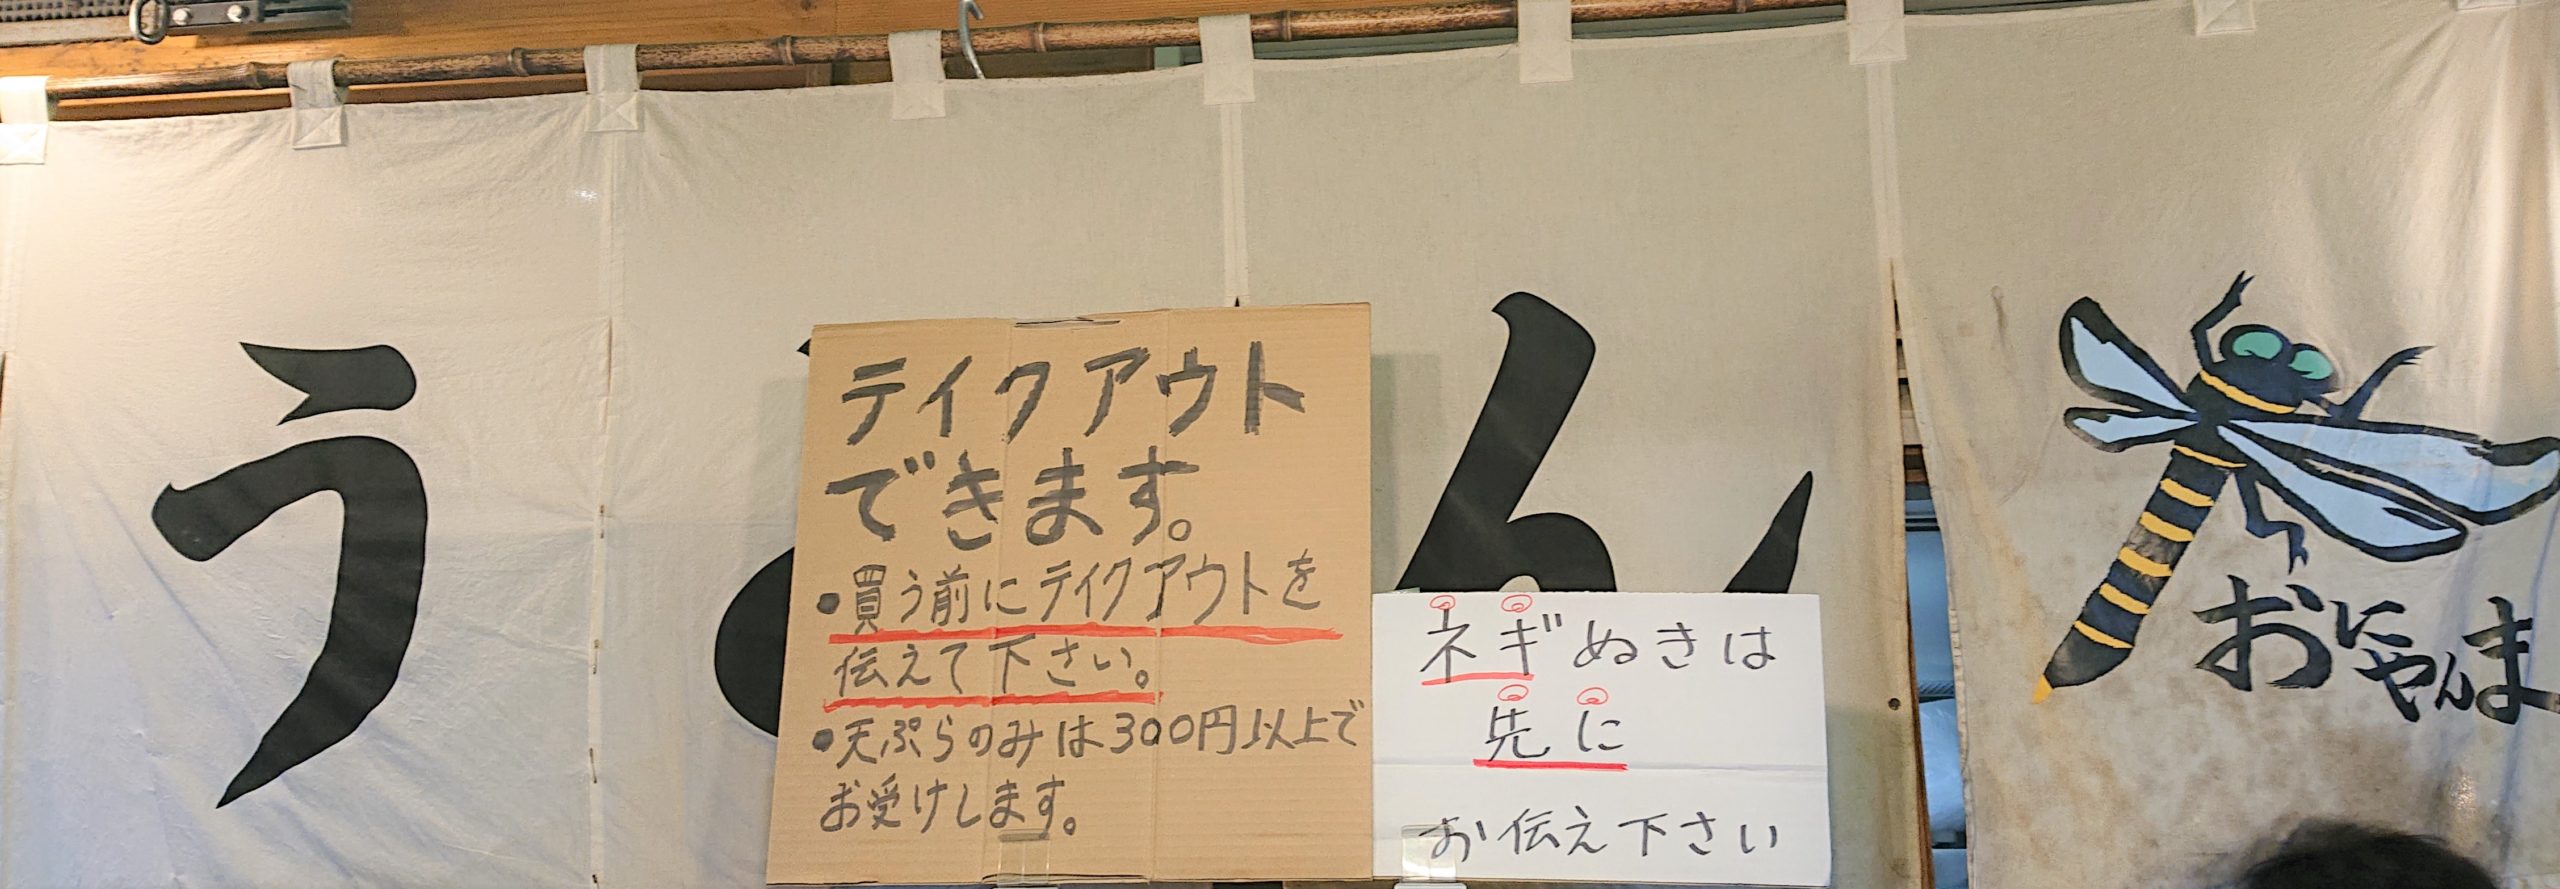 う
ん
テイクアウト
できます。
●買う前にテイクアウトを
伝えて下さい。
●天ぷらのみは300円以上で
お受けします。
ネギぬきは
先に
お伝え下さい
おにやんま